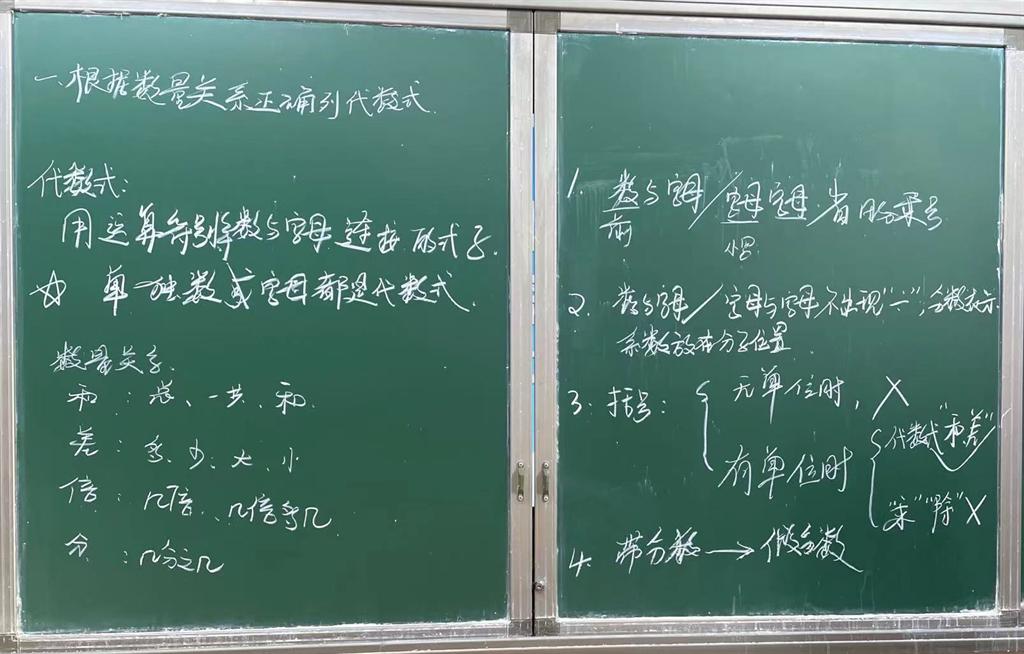 一、根据数量关系正确列代数式.
代数式:
用运算符号将数与字母连接的式子.
☆ 单独数或字母都是代数式.
数量关系.
和: 总、一共、和.
差: 多、少、大、小
倍: 几倍、几倍多几
分: 几分之几
1. 数与字母/字母字母, 省略乘号
前
2. 数与字母/字母与字母不出现"÷", 分数表示
系数放在分子位置
3. 括号: { 无单位时, X
有单位时 { 代数式"和差"✓
"乘""除"X
4. 带分数 → 假分数